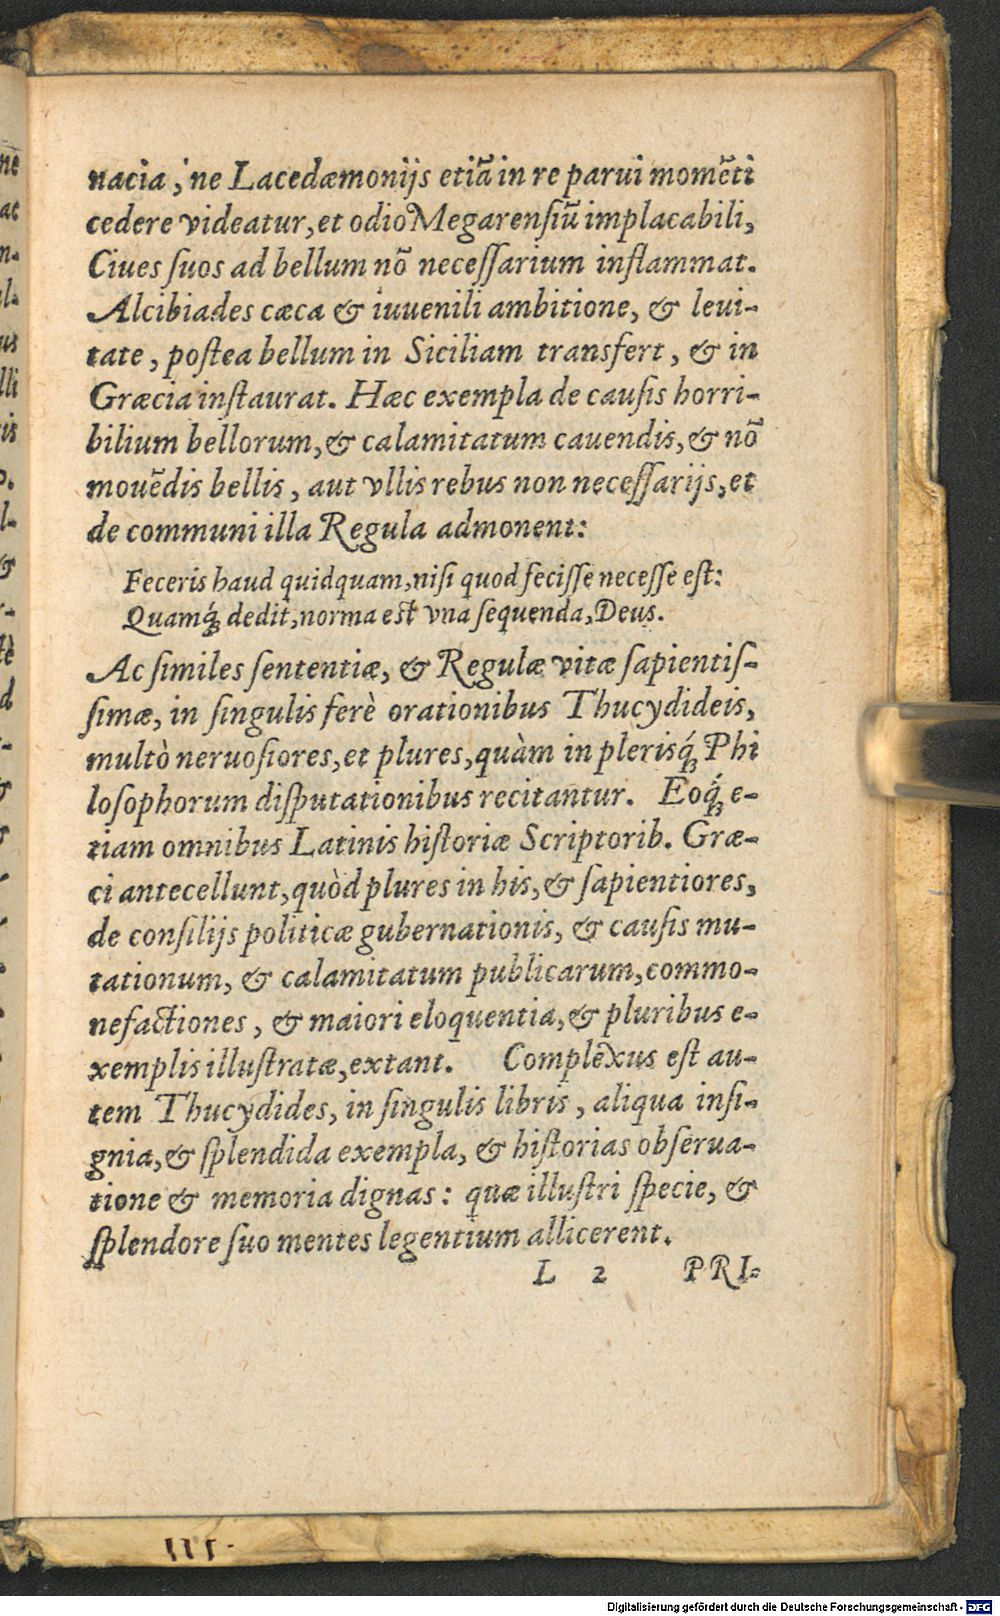 nacia, ne Lacedæmonijs etiā in re parui momēti
cedere videatur, et odio Megarensiū implacabili,
Ciues suos ad bellum nō necessarium inflammat.
Alcibiades cæca & iuuenili ambitione, & leui-
tate, postea bellum in Siciliam transfert, & in
Græcia instaurat. Hæc exempla de causis horri-
bilium bellorum, & calamitatum cauendis, & nō
mouēdis bellis, aut vllis rebus non necessarijs, et
de communi illa Regula admonent:
Feceris haud quidquam, nisi quod fecisse necesse est:
Quamq́; dedit, norma est vna sequenda, Deus.
Ac similes sententiæ, & Regulæ vitæ sapientis-
simæ, in singulis ferè orationibus Thucydideis,
multò neruosiores, et plures, quàm in plerisq́; Phi
losophorum disputationibus recitantur. Eoq́; e-
tiam omnibus Latinis historiæ Scriptorib. Græ-
ci antecellunt, quòd plures in his, & sapientiores,
de consilijs politicæ gubernationis, & causis mu-
tationum, & calamitatum publicarum, commo-
nefactiones, & maiori eloquentia, & pluribus e-
xemplis illustratæ, extant. Complexus est au-
tem Thucydides, in singulis libris, aliqua insi-
gnia, & splendida exempla, & historias obserua-
tione & memoria dignas: quæ illustri specie, &
splendore suo mentes legentium allicerent.
L 2 PRI-
Digitalisierung gefördert durch die Deutsche Forschungsgemeinschaft - DFG